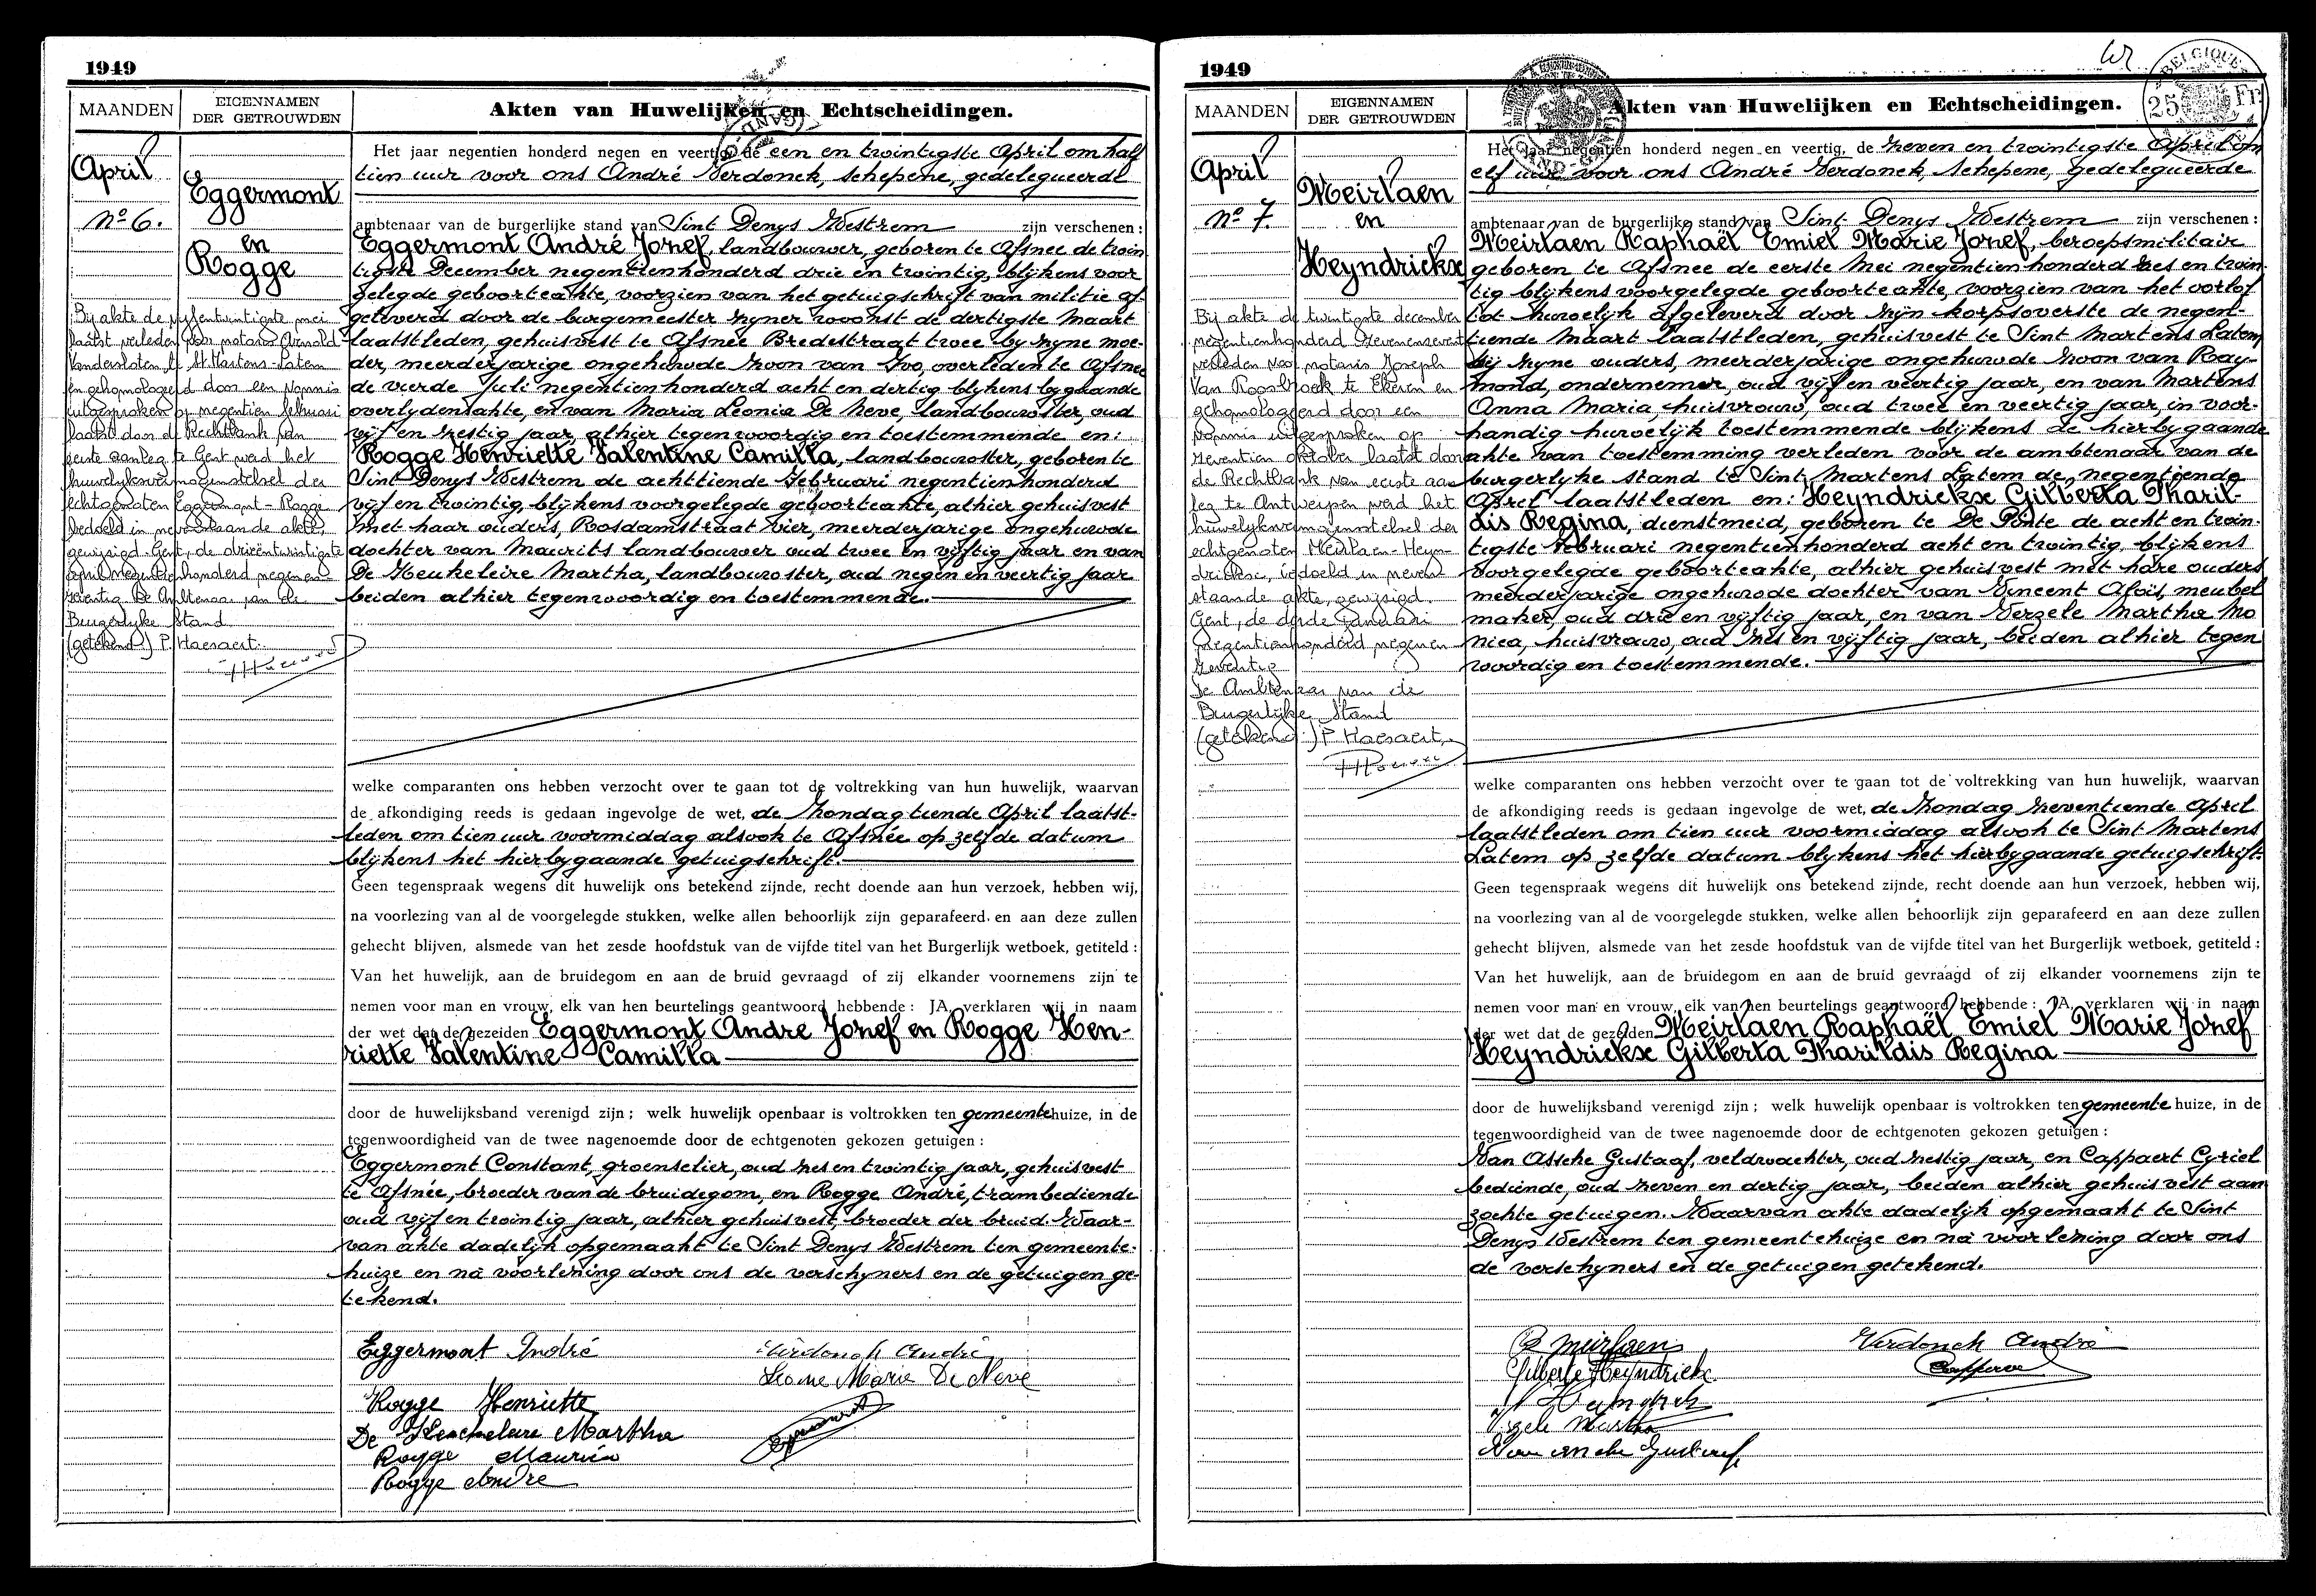 1949
MAANDEN
EIGENNAMEN
DER GETROUWDEN
Akten van Huwelijken en Echtscheidingen.
April
No 6.
Eggermont
en
Rogge
Het jaar negentien honderd negen en veertig, de een en twintigste April om half
tien uur voor ons André Verdonck, schepene, gedelegueerd
ambtenaar van de burgerlijke stand van Sint Denys Westrem zijn verschenen :
Eggermont André Jozef, landbouwer, geboren te Afsnee de twin
tigste December negentienhonderd drie en twintig, blijkens voor
gelegde geboorteakte, voorzien van het getuigschrift van militie af-
geleverd door de burgemeester zyner woonst de dertigste Maart
laatstleden, gehuisvest te Afsnee Bredestraat twee by zyne moe-
der, meerderjarige ongehuwde zoon van Ivo, overleden te Afsnee
de vierde Juli negentienhonderd acht en dertig blykens bygaande
overlydensakte, en van Maria Leonia De Neve, landbouwster, oud
vijf en zestig jaar, alhier tegenwoordig en toestemmende en:
Rogge Henriette Valentine Camilla, landbouwster, geboren te
Sint Denys Westrem de achttiende Februari negentienhonderd
vijf en twintig, blijkens voorgelegde geboorteakte, alhier gehuisvest
met haar ouders, Rosdamstraat vier, meerderjarige ongehuwde
dochter van Maurits landbouwer oud twee en vijftig jaar en van
De Heukeleire Martha, landbouwster, oud negen en veertig jaar
beiden alhier tegenwoordig en toestemmende.
Bij akte de vijfentwintigste mei
laatst verleden voor notaris Arnold
Vandersloten te St Martens-Latem
en gehomologeerd door een vonnis
uitgesproken op negentien februari
laatst door de Rechtbank van
eerste aanleg te Gent werd het
huwelijksvermogenstelsel der
echtgenoten Eggermont-Rogge
bedoeld in nevenstaande akte,
gewijzigd Gent, de drieëntwintigste
april negentienhonderd negenen
zeventig De Ambtenaar van de
Burgerlijke Stand
(getekend) P. Haesaert.
welke comparanten ons hebben verzocht over te gaan tot de voltrekking van hun huwelijk, waarvan
de afkondiging reeds is gedaan ingevolge de wet, de Zondag tiende April laatst-
leden om tien uur voormiddag alsook te Afsnée op zelfde datum
blijkens het hierbygaande getuigschrift.
Geen tegenspraak wegens dit huwelijk ons betekend zijnde, recht doende aan hun verzoek, hebben wij,
na voorlezing van al de voorgelegde stukken, welke allen behoorlijk zijn geparafeerd en aan deze zullen
gehecht blijven, alsmede van het zesde hoofdstuk van de vijfde titel van het Burgerlijk wetboek, getiteld :
Van het huwelijk, aan de bruidegom en aan de bruid gevraagd of zij elkander voornemens zijn te
nemen voor man en vrouw, elk van hen beurtelings geantwoord hebbende : JA, verklaren wij in naam
der wet dat de gezeiden Eggermont Andre Jozef en Rogge Hen-
riette Valentine Camilla
door de huwelijksband verenigd zijn ; welk huwelijk openbaar is voltrokken ten gemeentehuize, in de
tegenwoordigheid van de twee nagenoemde door de echtgenoten gekozen getuigen :
Eggermont Constant, groenselier, oud zes en twintig jaar, gehuisvest
te Afsnée, broeder van de bruidegom, en Rogge André, trambediende
oud vijf en twintig jaar, alhier gehuisvest, broeder der bruid. Waar-
van akte dadelijk opgemaakt te Sint Denys Westrem ten gemeente-
huize en na voorlezing door ons de verschyners en de getuigen ge-
tekend.
Eggermont André
Verdonck André
Leonie Marie De Neve
Rogge Henriette
De Heukeleire Martha
Rogge Maurice
Rogge Andre
1949
MAANDEN
EIGENNAMEN
DER GETROUWDEN
Akten van Huwelijken en Echtscheidingen.
BELGIQUE
25 Fr.
April
No 7.
Meirlaen
en
Heyndrickx
Het jaar negentien honderd negen en veertig, de zeven en twintigste April om
elf uur voor ons André Verdonck, schepene, gedelegueerde
ambtenaar van de burgerlijke stand van Sint Denys Westrem zijn verschenen :
Meirlaen Raphaël Emiel Marie Jozef, beroepsmilitair
geboren te Afsnee de eerste Mei negentienhonderd zes en twin-
tig blijkens voorgelegde geboorteakte, voorzien van het oorlof
tot huwelyk afgeleverd door zijn korpsoverste de negent-
tiende Maart laatstleden, gehuisvest te Sint Martens Latem
bij zyne ouders, meerderjarige ongehuwde zoon van Ray-
mond, ondernemer, oud vijf en veertig jaar, en van Martens
Anna Maria huisvrouw, oud twee en veertig jaar, in voor-
handig huwelijk toestemmende blijkens de hierbygaande
akte van toestemming verleden voor de ambtenaar van de
burgerlyke stand te Sint Martens Latem de negentiende
April laatstleden en: Heyndrickx Gilberta Tharil-
dis Regina, dienstmeid, geboren te De Pinte de acht en twin-
tigste Februari negentienhonderd acht en twintig, blijkens
voorgelegde geboorteakte, alhier gehuisvest met hare ouders
meerderjarige ongehuwde dochter van Vincent Afoïl, meubel
maker, oud drie en vijftig jaar, en van Verzele Martha Mo
nica, huisvrouw, oud zes en vijftig jaar, beiden alhier tegen
woordig en toestemmende.
Bij akte de twintigste december
negentienhonderd zevenenzeventig
verleden voor notaris Joseph
Van Roosbroek te Ekeren en
gehomologeerd door een
vonnis uitgesproken op
zeventien oktober laatst door
de Rechtbank van eerste aan
leg te Antwerpen werd het
huwelyksvermogensstelsel der
echtgenoten Meirlaen-Heyn-
drickx, bedoeld in neven
staande akte, gewijzigd.
Gent, de derde januari
negentienhonderd negenen
zeventig
De Ambtenaar van de
Burgerlijke Stand
(getekend) P Haesaert.
welke comparanten ons hebben verzocht over te gaan tot de voltrekking van hun huwelijk, waarvan
de afkondiging reeds is gedaan ingevolge de wet, de Zondag zeventiende April
laatstleden om tien uur voormiddag alsook te Sint Martens
Latem op zelfde datum blykens het hierbygaande getuigschrift.
Geen tegenspraak wegens dit huwelijk ons betekend zijnde, recht doende aan hun verzoek, hebben wij,
na voorlezing van al de voorgelegde stukken, welke allen behoorlijk zijn geparafeerd en aan deze zullen
gehecht blijven, alsmede van het zesde hoofdstuk van de vijfde titel van het Burgerlijk wetboek, getiteld :
Van het huwelijk, aan de bruidegom en aan de bruid gevraagd of zij elkander voornemens zijn te
nemen voor man en vrouw, elk van hen beurtelings geantwoord hebbende : JA, verklaren wij in naam
der wet dat de gezeiden Meirlaen Raphaël Emiel Marie Jozef
Heyndrickx Gilberta Tharildis Regina
door de huwelijksband verenigd zijn ; welk huwelijk openbaar is voltrokken ten gemeente huize, in de
tegenwoordigheid van de twee nagenoemde door de echtgenoten gekozen getuigen :
Van Assche Gustaaf, veldwachter, oud zestig jaar, en Cappaert Cyriel
bediende, oud zeven en dertig jaar, beiden alhier gehuisvest aan
zochte getuigen. Waarvan akte dadelijk opgemaakt te Sint
Denys Westrem ten gemeentehuize en na voorlezing door ons
de verschyners en de getuigen getekend.
R Meirlaen
Verdonck André
Gilberte Heyndrickx
Martha